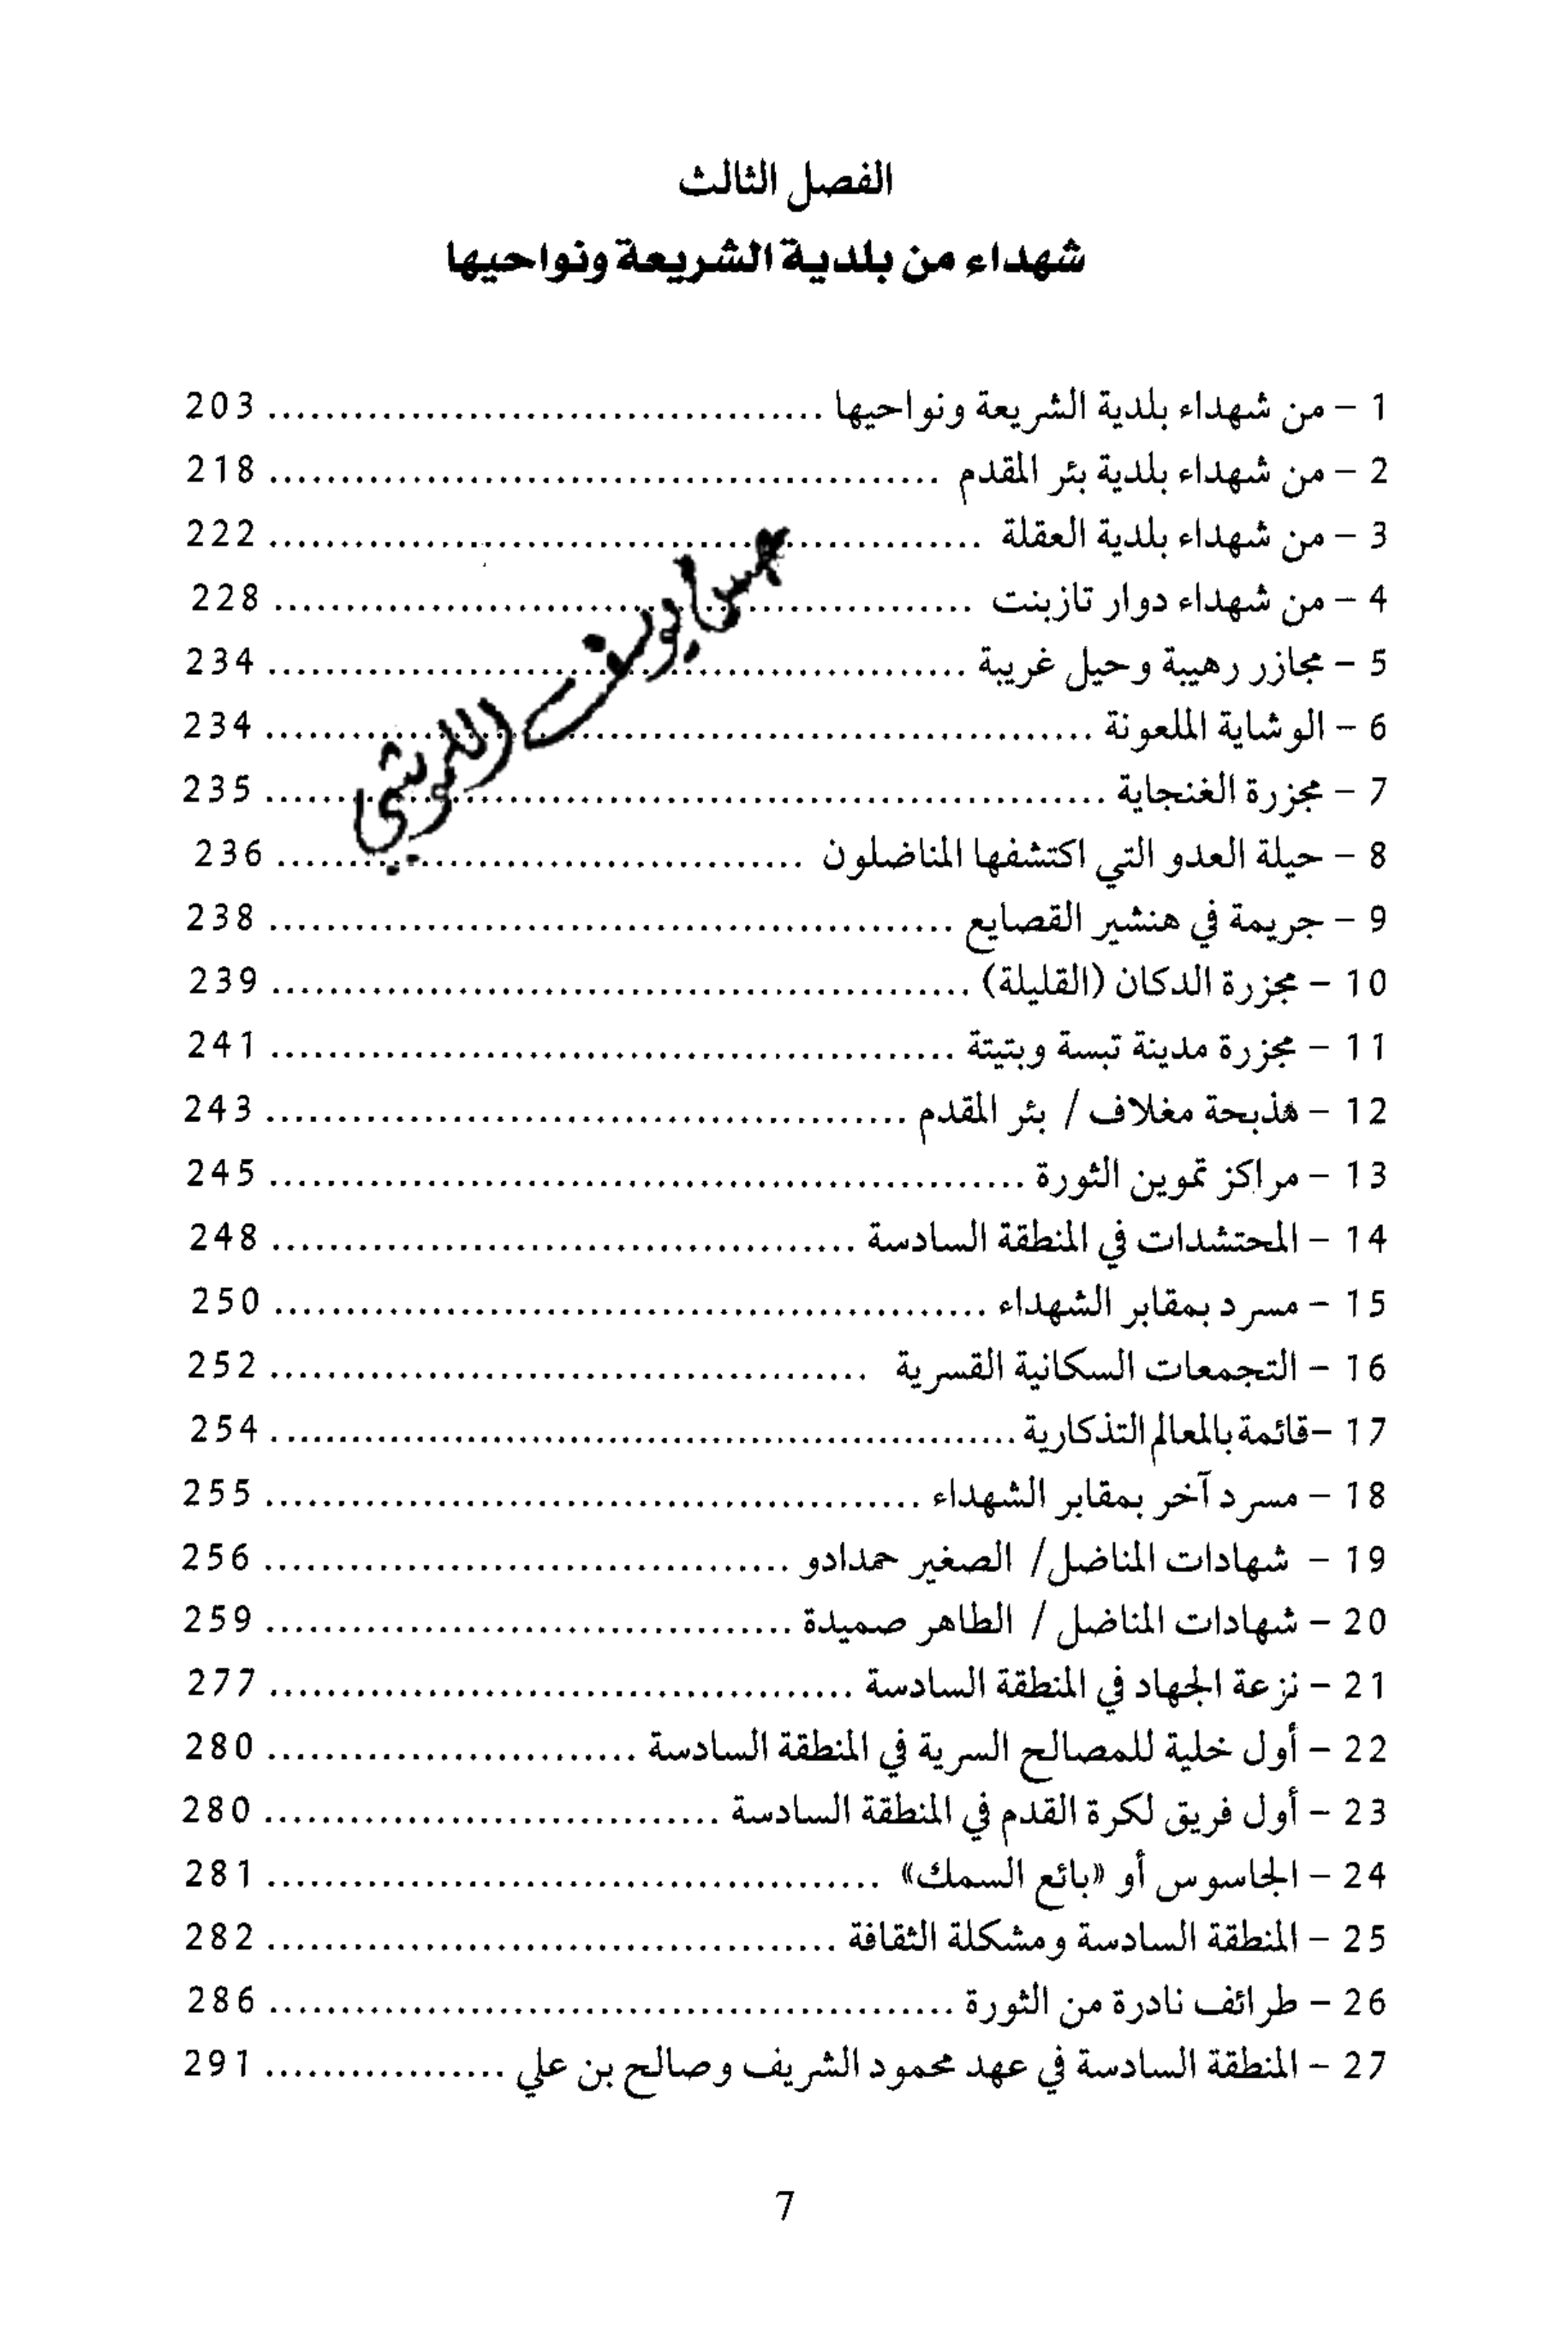 الفصل الثالث
شهداء من بلدية الشريعة ونواحيها
1 – من شهداء بلدية الشريعة ونواحيها ....................................... 203
2 – من شهداء بلدية بئر المقدم ............................................... 218
3 – من شهداء بلدية العقلة .................................................. 222
4 – من شهداء دوار تازبنت ................................................. 228
5 – مجازر رهيبة وحيل غريبة ................................................. 234
6 – الوشاية الملعونة .......................................................... 234
7 – مجزرة الغنجاية ........................................................... 235
8 – حيلة العدو التي اكتشفها المناضلون ..................................... 236
9 – جريمة في هنشير القصايع ................................................ 238
10 – مجزرة الدكان (القليلة) ................................................. 239
11 – مجزرة مدينة تبسة وبتيتة ................................................ 241
12 – مذبحة مغلاف / بئر المقدم ............................................. 243
13 – مراكز تموين الثورة ..................................................... 245
14 – المحتشدات في المنطقة السادسة ......................................... 248
15 – مسرد بمقابر الشهداء .................................................. 250
16 – التجمعات السكانية القسرية .......................................... 252
17 –قائمة بالمعالم التذكارية .................................................... 254
18 – مسرد آخر بمقابر الشهداء .............................................. 255
19 – شهادات المناضل/ الصغير حمدادو ..................................... 256
20 – شهادات المناضل / الطاهر صميدة ..................................... 259
21 – نزعة الجهاد في المنطقة السادسة ......................................... 277
22 – أول خلية للمصالح السرية في المنطقة السادسة .......................... 280
23 – أول فريق لكرة القدم في المنطقة السادسة ................................ 280
24 – الجاسوس أو «بائع السمك» ........................................... 281
25 – المنطقة السادسة ومشكلة الثقافة ........................................ 282
26 – طرائف نادرة من الثورة ................................................ 286
27 – المنطقة السادسة في عهد محمود الشريف وصالح بن علي ................. 291
7